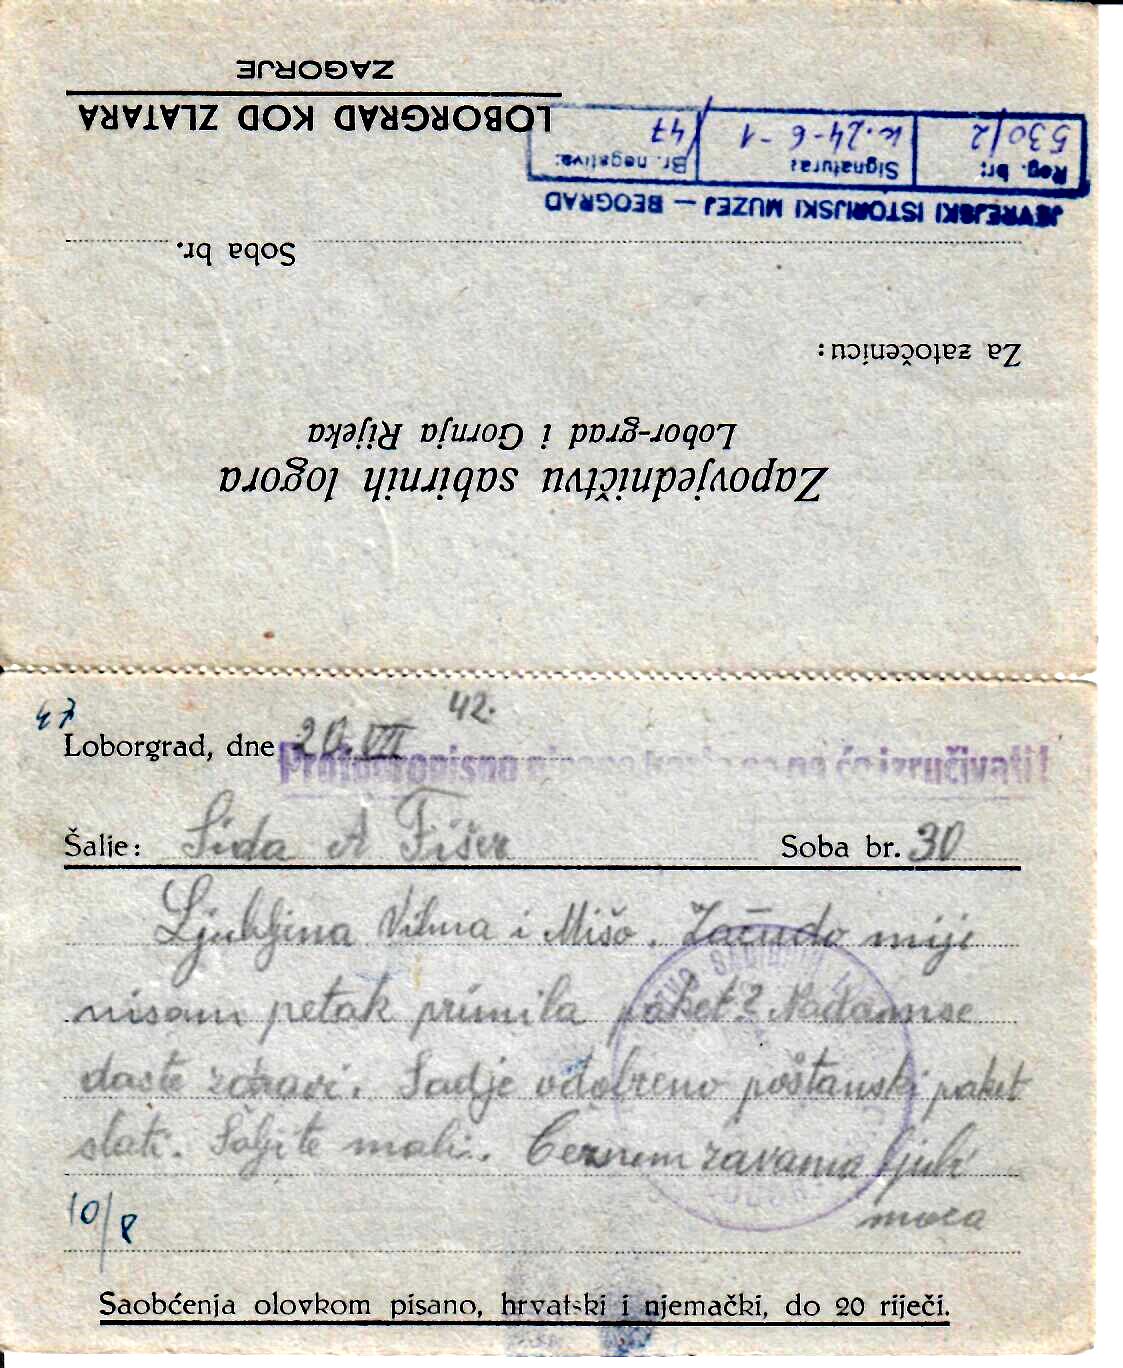 ZAGORJE
LOBORGRAD KOD ZLATARA
JEVREJSKI ISTORIJSKI MUZEJ — BEOGRAD
Reg. br: 530/2
Signatura: k. 24-6-1
Br. negativa: /47
Soba br.
Za zatočenicu:
Lobor-grad i Gornja Rijeka
Zapovjedničtvu sabirnih logora
47
Loborgrad, dne 20. VII 42.
Protupropisno se ne će izručivati!
Šalje: Sida A Fišer Soba br. 30
Ljubljena Vilma i Mišo. Začudo mije
nisam petak primila paket? Nadamse
daste zdravi. Sadje odobreno poštanski paket
slati. Šaljite mali. Čeznem zavama ljub
10/8
Saobćenja olovkom pisano, hrvatski i njemački, do 20 riječi.